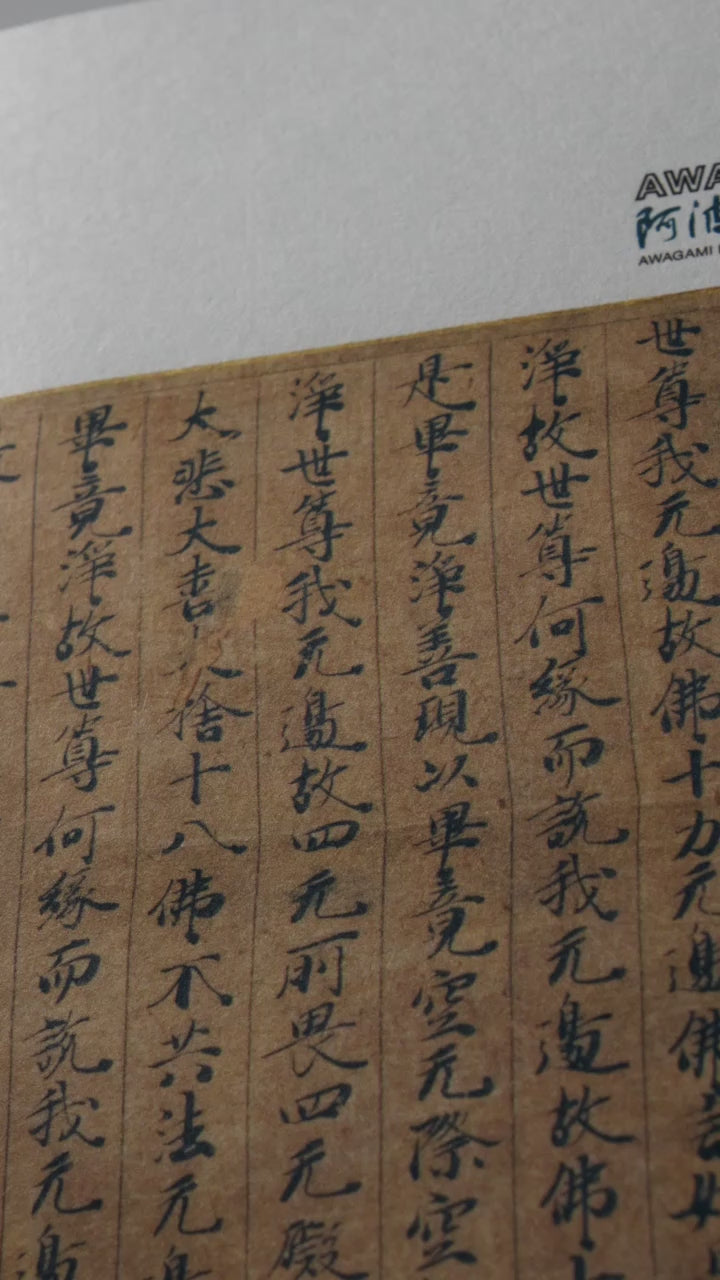 AWA
阿波
AWAGAMI
世尊我无邊故佛十力无邊佛言
淨故世尊何緣而說我无邊故佛十
是畢竟淨善現以畢竟空无際空
淨世尊我无邊故四无所畏四无礙
大悲大喜大捨十八佛不共法无邊
畢竟淨故世尊何緣而說我无邊